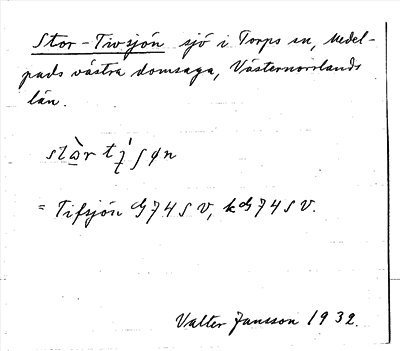 Stor-Tivsjön sjö i Torps sn, Medel-
pads västra domsaga, Västernorrlands
län.
= Tifsjön G74SV, kG74SV.
Valter Jansson 1932.